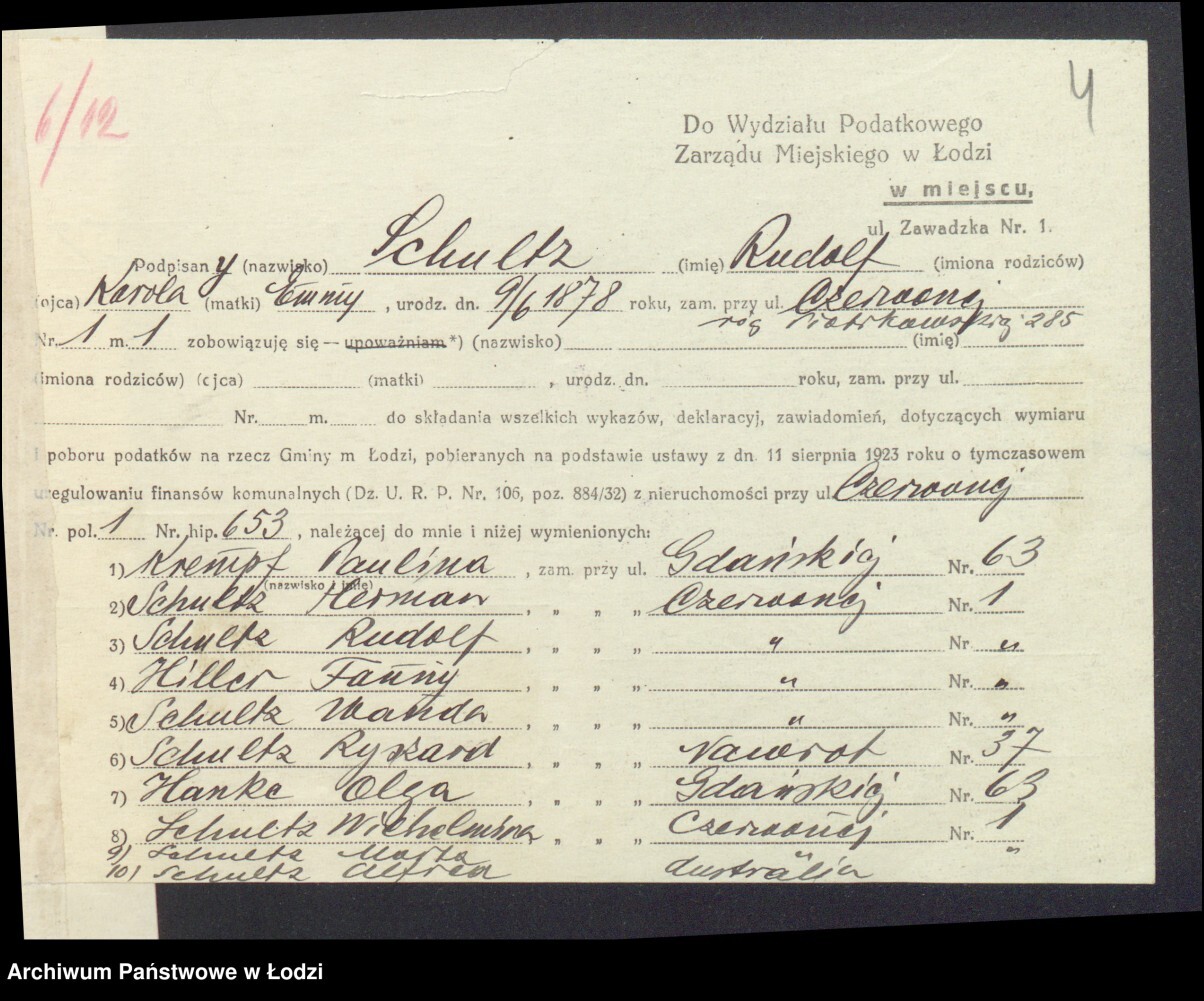 6/12
4
Do Wydziału Podatkowego
Zarządu Miejskiego w Łodzi
w miejscu,
ul. Zawadzka Nr. 1.
Podpisany (nazwisko) Schultz (imię) Rudolf (imiona rodziców)
(ojca) Karola (matki) Emmy, urodz. dn. 9/6 1878 roku, zam. przy ul. Czerwonej
róg Piotrkowskiej 285
Nr. 1 m. 1 zobowiązuję się — upoważniam *) (nazwisko) (imię)
(imiona rodziców) (ojca) (matki) , urodz. dn. roku, zam. przy ul.
Nr. m. do składania wszelkich wykazów, deklaracyj, zawiadomień, dotyczących wymiaru
i poboru podatków na rzecz Gminy m Łodzi, pobieranych na podstawie ustawy z dn. 11 sierpnia 1923 roku o tymczasowem
uregulowaniu finansów komunalnych (Dz. U. R. P. Nr. 106, poz. 884/32) z nieruchomości przy ul. Czerwonej
Nr. pol. 1 Nr. hip. 653, należącej do mnie i niżej wymienionych:
1) Krempf Paulina , zam. przy ul. Gdańskiej Nr. 63
(nazwisko i imię)
2) Schultz Herman , „ „ „ Czerwonej Nr. 1
3) Schultz Rudolf , „ „ „ „ Nr. „
4) Hiller Fanny , „ „ „ „ Nr. „
5) Schultz Wanda , „ „ „ „ Nr. „
6) Schultz Ryszard , „ „ „ Nawrot Nr. 37
7) Hanke Olga , „ „ „ Gdańskiej Nr. 63
8) Schultz Wilhelmina , „ „ „ Czerwonej Nr. 1
9) Schultz Marta „ „
10) Schultz Alfred Australia
Archiwum Państwowe w Łodzi